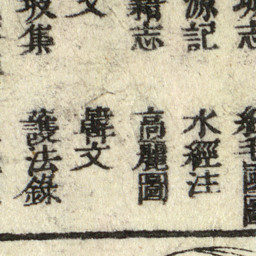 志
源記 水經注
籍志 高麗圖
文 韓文
坡集 護法錄